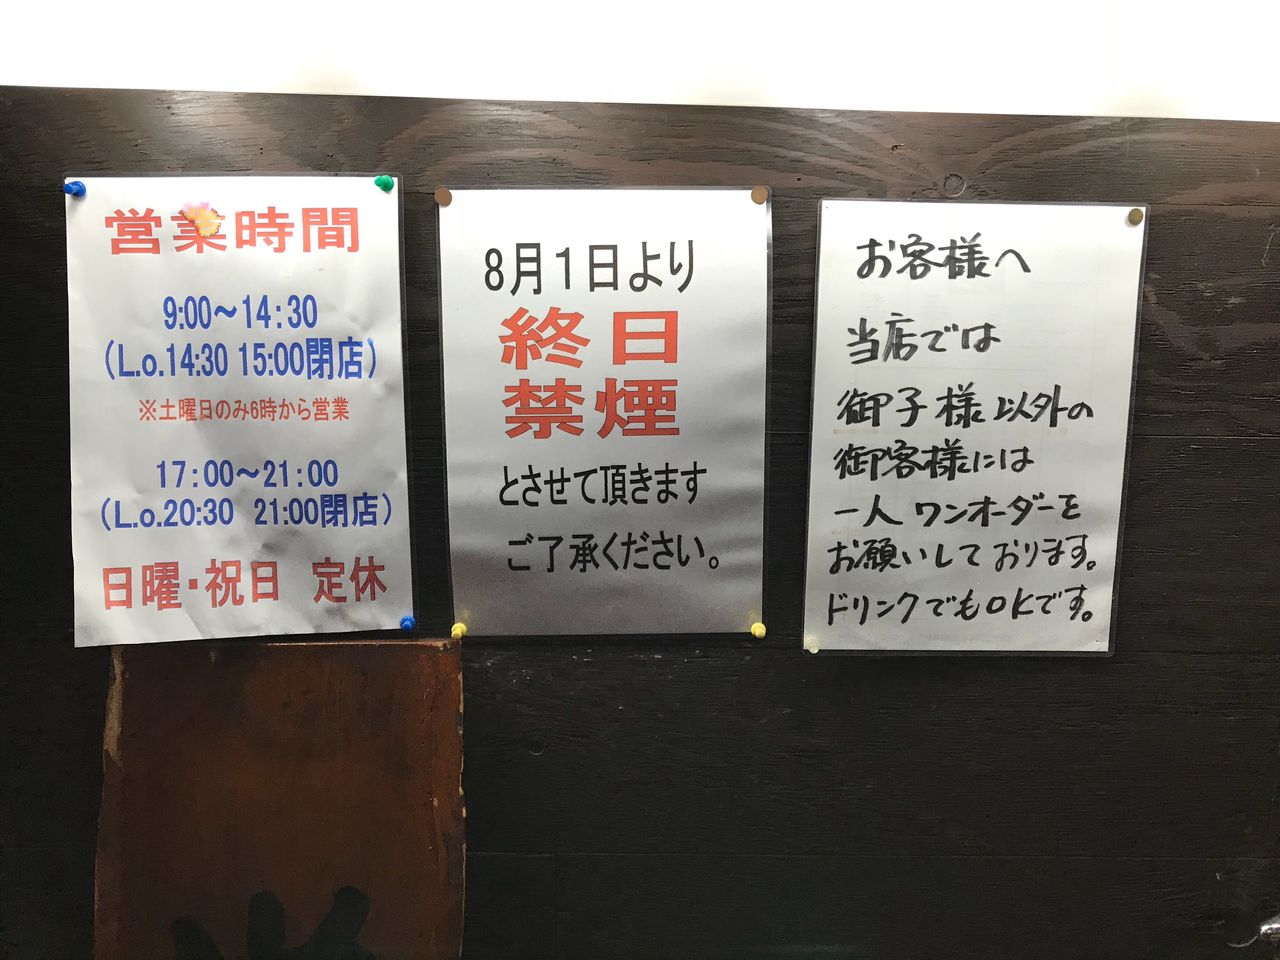 営業時間
9:00～14:30
(L.o.14:30 15:00閉店)
※土曜日のみ6時から営業
17:00～21:00
(L.o.20:30 21:00閉店)
日曜・祝日 定休
8月1日より
終日
禁煙
とさせて頂きます
ご了承ください。
お客様へ
当店では
御子様以外の
御客様には
一人ワンオーダーを
お願いしております。
ドリンクでもOKです。